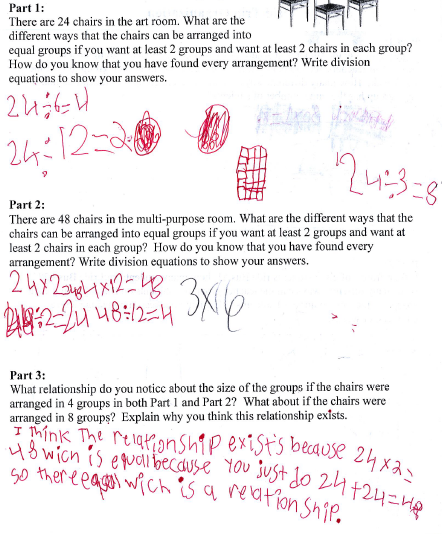 Part 1:
There are 24 chairs in the art room. What are the
different ways that the chairs can be arranged into
equal groups if you want at least 2 groups and want at least 2 chairs in each group?
How do you know that you have found every arrangement? Write division
equations to show your answers.
24÷6=4
24÷12=2
24÷3=8
Part 2:
There are 48 chairs in the multi-purpose room. What are the different ways that the
chairs can be arranged into equal groups if you want at least 2 groups and want at
least 2 chairs in each group? How do you know that you have found every
arrangement? Write division equations to show your answers.
24x2=48 4x12=48
48÷2=24 48÷12=4 3x6
Part 3:
What relationship do you notice about the size of the groups if the chairs were
arranged in 4 groups in both Part 1 and Part 2? What about if the chairs were
arranged in 8 groups? Explain why you think this relationship exists.
I think The relationship exists because 24x2=
48 wich is equal because You just do 24+24=48
so there equal wich is a relationship.